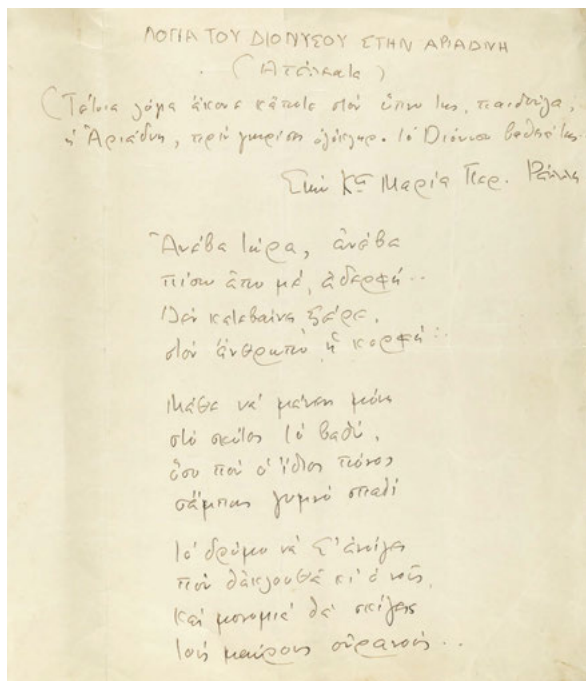 ΛΟΓΙΑ ΤΟΥ ΔΙΟΝΥΣΟΥ ΣΤΗΝ ΑΡΙΑΔΝΗ
(Ατέλειωτα)
(Τέτοια λόγια άκουε κάποτε στον ύπνο της, παιδούλα,
ἡ Ἀριάδνη, πριν γνωρίση ολόκληρο το Διόνυσο βαθειά της.
Στην Κα Μαρία Περ. Ράλλη
Ἀνέβα τώρα, ἀνέβα
πίσω ἀπό μέ, ἀδερφή..
Δεν κατεβαίνει ξέρε,
στον ἄνθρωπο ἡ κορφή..
Μάθε νά μένης μόνη
στό σκότος τό βαθύ,
ὅσο πού ὁ ἴδιος πόνος
σάμπως γυμνό σπαθί
τό δρόμο νά σ' ἀνοίγει
πού θἀκλουθᾶ κι ὁ νοῦς,
καί μονομιᾶ θά σκίζεις
τούς μαύρους οὐρανούς..